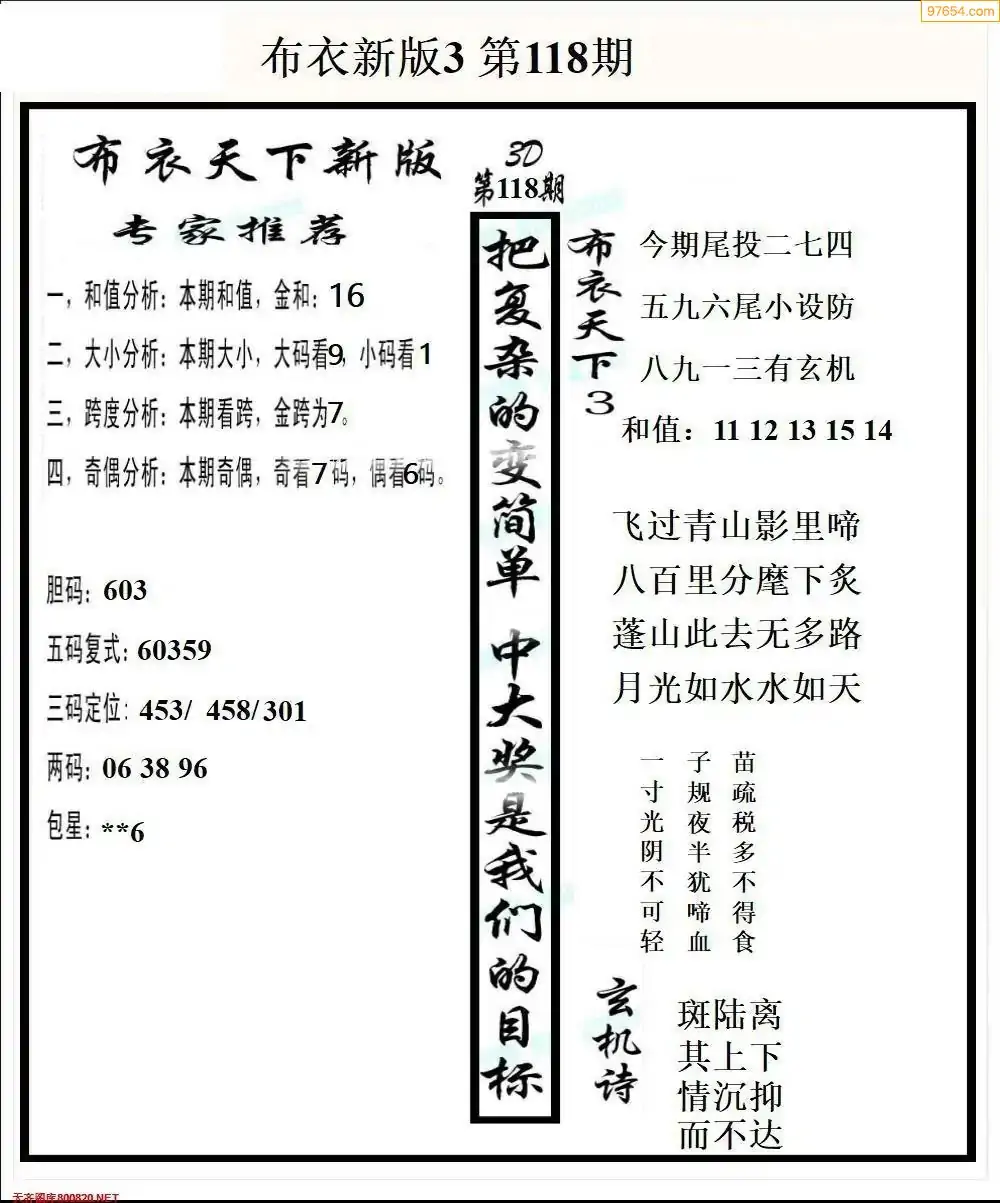 97654.com
布衣新版3 第118期
布衣天下新版
专家推荐
一，和值分析：本期和值，金和：16
二，大小分析：本期大小，大码看9，小码看1
三，跨度分析：本期看跨，金跨为7。
四，奇偶分析：本期奇偶，奇看7码，偶看6码。
胆码：603
五码复式：60359
三码定位：453/ 458/301
两码：06 38 96
包星：**6
3D
第118期
把复杂的变简单 中大奖是我们的目标
布衣天下3
今期尾投二七四
五九六尾小设防
八九一三有玄机
和值：11 12 13 15 14
飞过青山影里啼
八百里分麾下炙
蓬山此去无多路
月光如水水如天
苗疏税多不得食
子规夜半犹啼血
一寸光阴不可轻
玄机诗
斑陆离
其上下
情沉抑
而不达
天齐图库800820.NET